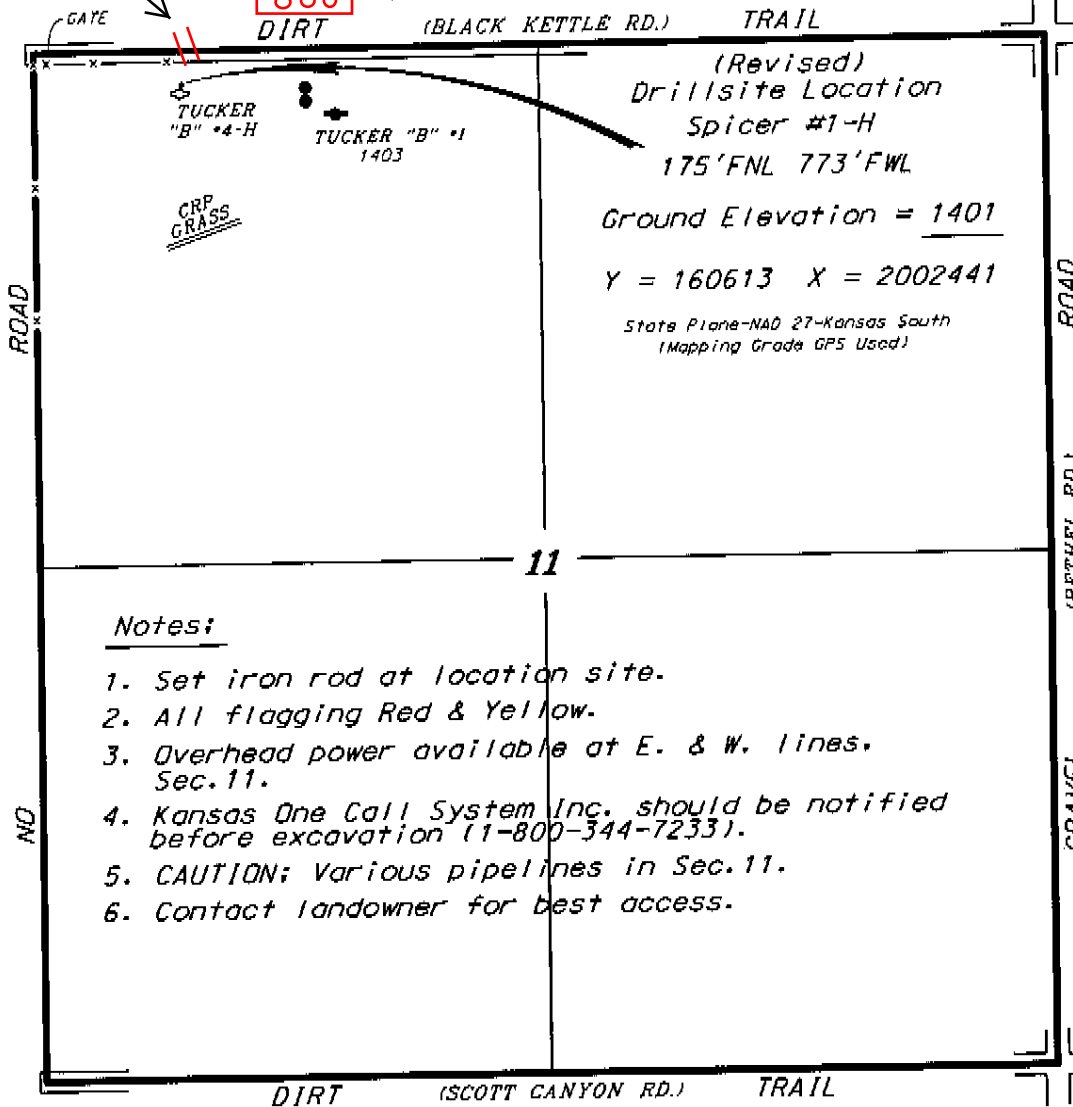 GATE
DIRT (BLACK KETTLE RD.) TRAIL
(Revised)
Drillsite Location
Spicer #1-H
175'FNL 773'FWL
Ground Elevation = 1401
Y = 160613 X = 2002441
State Plane-NAD 27-Kansas South
(Mapping Grade GPS Used)
TUCKER
"B" #4-H
TUCKER "B" #1
1403
CRP
GRASS
ROAD
ROAD
11
Notes:
1. Set iron rod at location site.
2. All flagging Red & Yellow.
3. Overhead power available at E. & W. lines,
Sec.11.
4. Kansas One Call System Inc. should be notified
before excavation (1-800-344-7233).
5. CAUTION: Various pipelines in Sec.11.
6. Contact landowner for best access.
NO
DIRT (SCOTT CANYON RD.) TRAIL